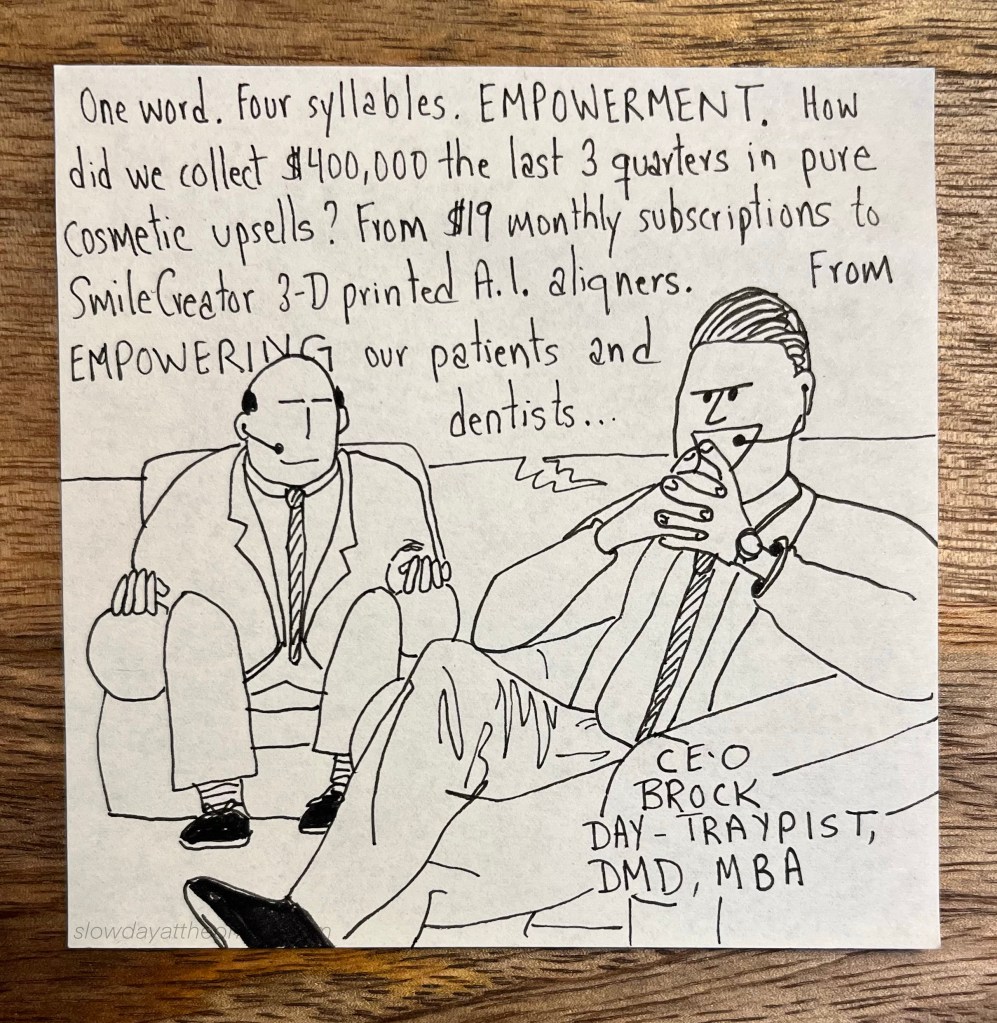 One word. Four syllables. EMPOWERMENT. How
did we collect $400,000 the last 3 quarters in pure
cosmetic upsells? From $19 monthly subscriptions to
SmileCreator 3-D printed A.I. aligners. From
EMPOWERING our patients and
dentists...
CE·O
BROCK
DAY-TRAYPIST,
DMD, MBA